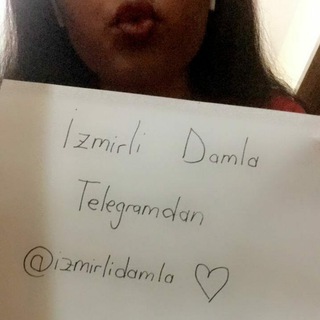 İzmirli Damla
Telegramdan
@izmirlidamla ♡